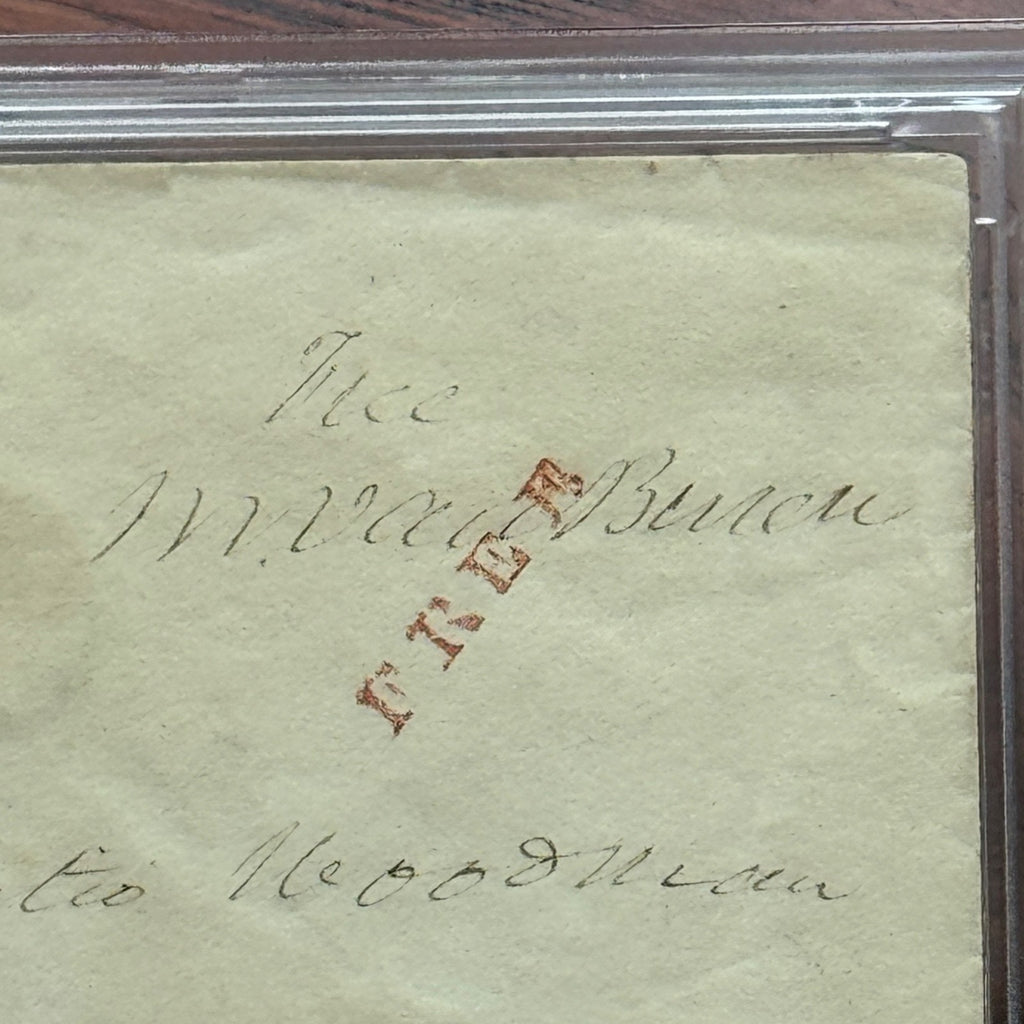 Free
M. Van Buren
FREE
tio Woodman